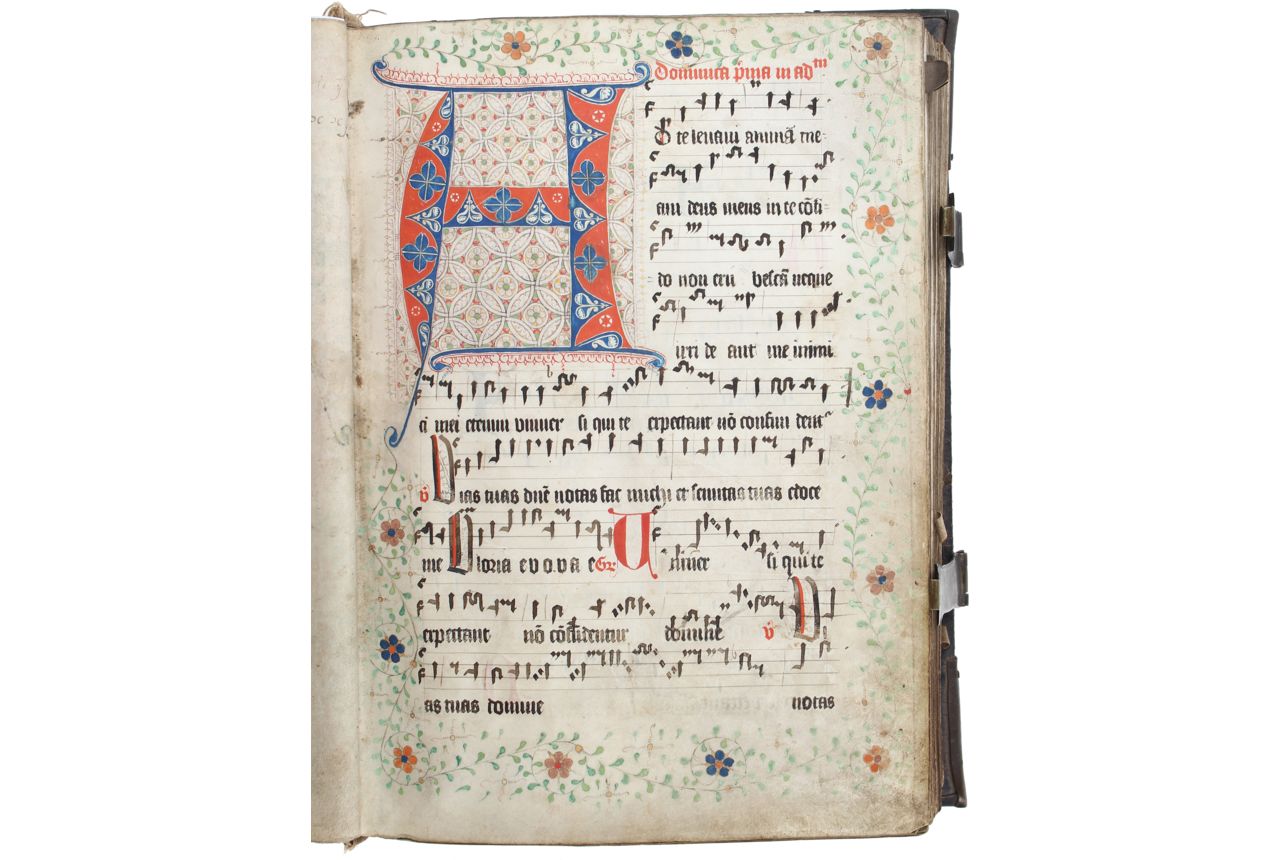 Dominica p̄ma in adtū
A D te levavi animā me
am deus meus in te cōfi
do non eru bescā neque
irri de ant me inimi
ci mei etenim univer si qui te expectant nō confun dent'
V̄ Vias tuas dn̄e notas fac michi et semitas tuas edoce
me Gloria evovae Gr̄ Universi qui te
expectant nō cōfūdentur domine V̄ Vi
as tuas domine notas